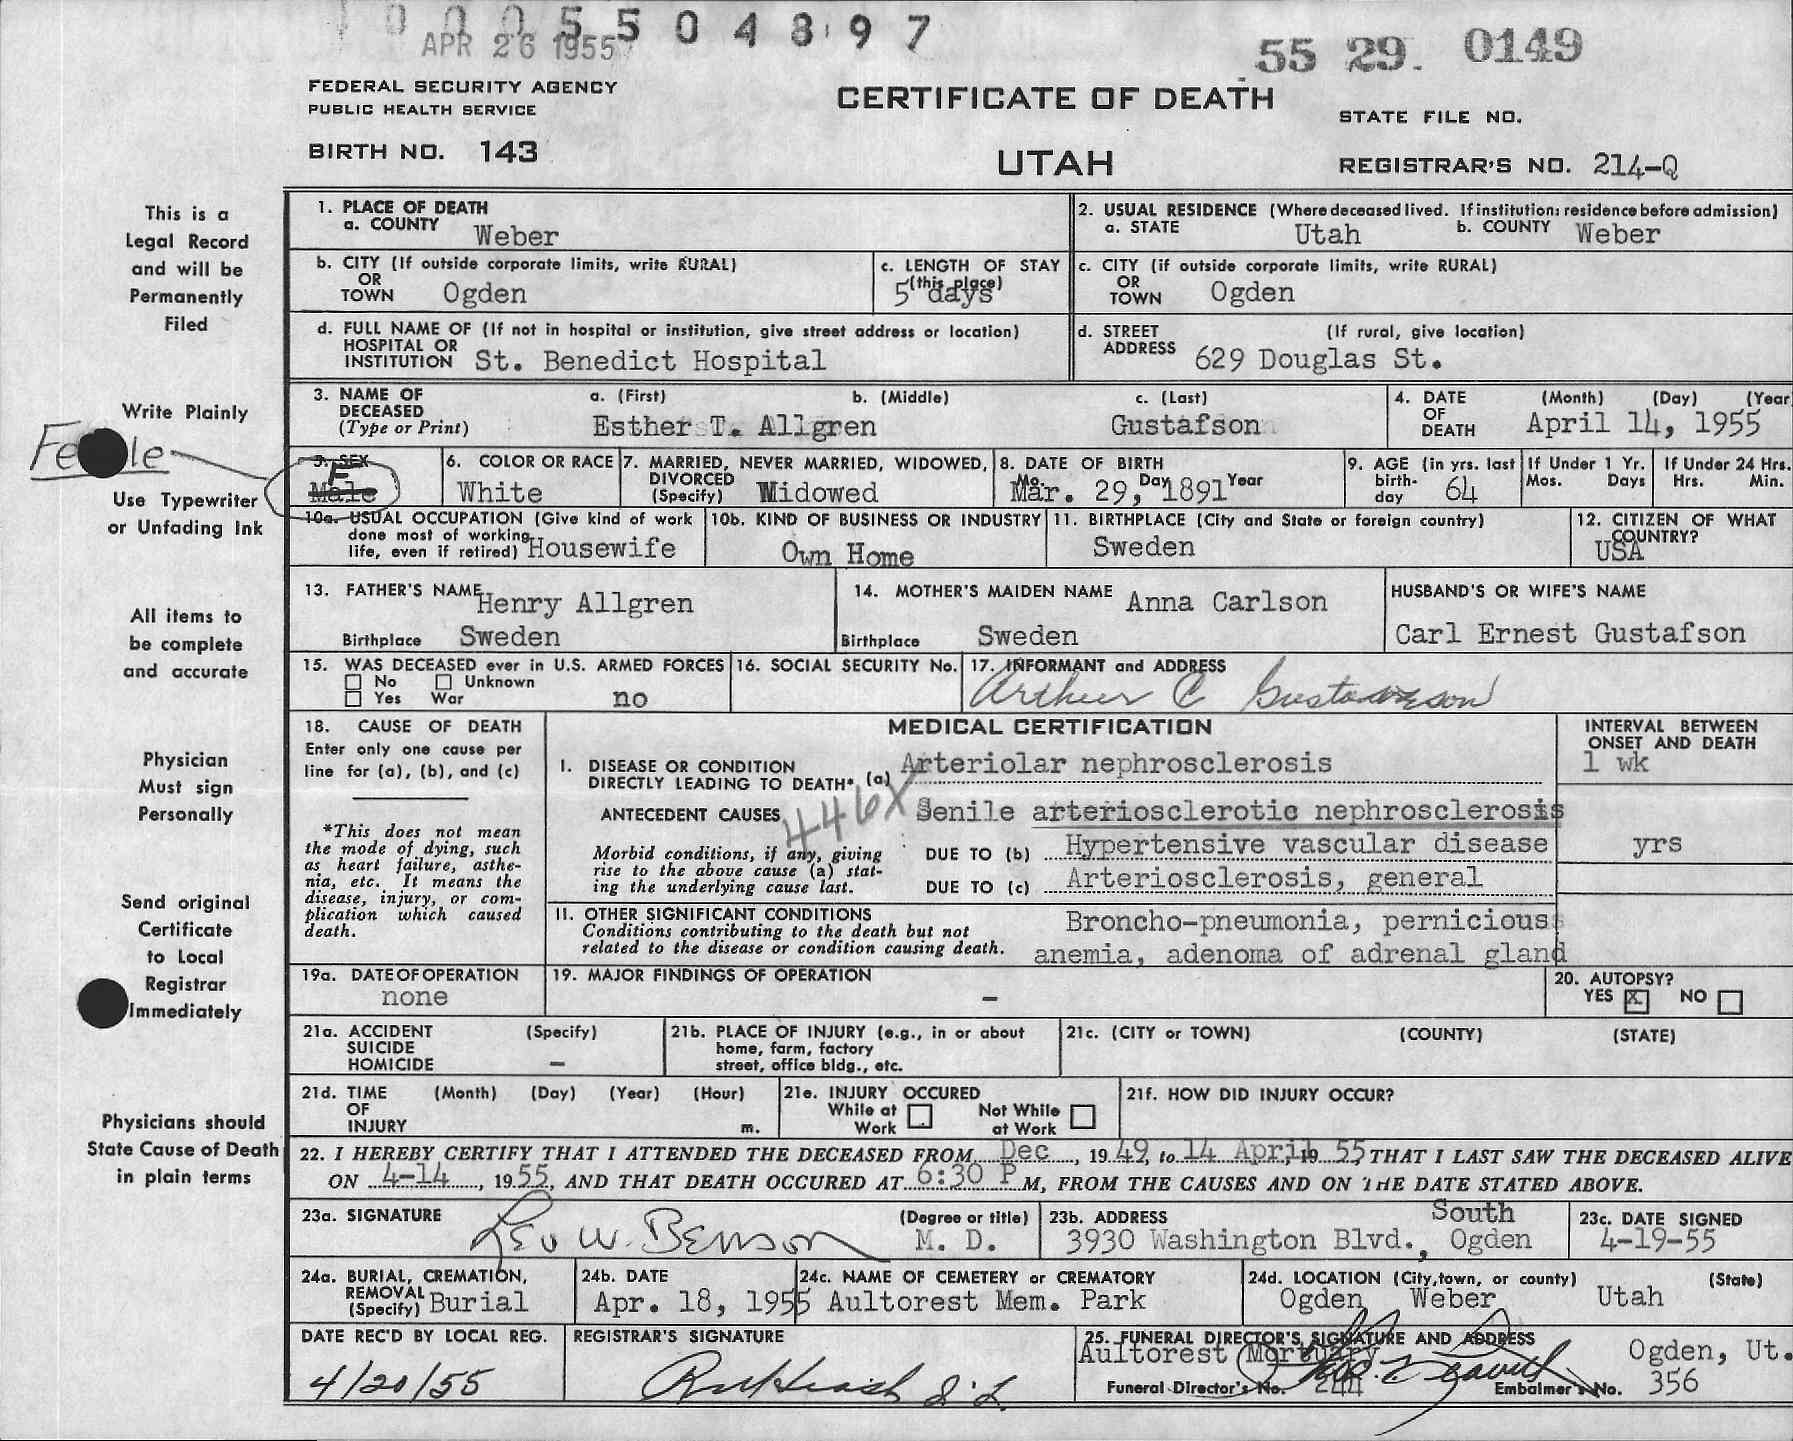 0 0 0 5 5 0 4 8 9 7
APR 26 1955
55 29. 0149
FEDERAL SECURITY AGENCY
PUBLIC HEALTH SERVICE
CERTIFICATE OF DEATH
STATE FILE NO.
BIRTH NO. 143
UTAH
REGISTRAR'S NO. 214-Q
This is a
Legal Record
and will be
Permanently
Filed
1. PLACE OF DEATH
a. COUNTY Weber
2. USUAL RESIDENCE (Where deceased lived. If institution: residence before admission)
a. STATE Utah b. COUNTY Weber
b. CITY (If outside corporate limits, write RURAL)
OR
TOWN Ogden
c. LENGTH OF STAY
(this place)
5 days
c. CITY (if outside corporate limits, write RURAL)
OR
TOWN Ogden
d. FULL NAME OF (If not in hospital or institution, give street address or location)
HOSPITAL OR
INSTITUTION St. Benedict Hospital
d. STREET (If rural, give location)
ADDRESS 629 Douglas St.
Write Plainly
3. NAME OF a. (First) b. (Middle) c. (Last)
DECEASED
(Type or Print) Esther T. Allgren Gustafson
4. DATE (Month) (Day) (Year
OF
DEATH April 14, 1955
Fe le
Use Typewriter
or Unfading Ink
5. SEX
F
Male
6. COLOR OR RACE
White
7. MARRIED, NEVER MARRIED, WIDOWED,
DIVORCED
(Specify) Widowed
8. DATE OF BIRTH
Mo. Day Year
Mar. 29, 1891
9. AGE (in yrs. last
birth-
day 64
If Under 1 Yr.
Mos. Days
If Under 24 Hrs.
Hrs. Min.
10a. USUAL OCCUPATION (Give kind of work
done most of working
life, even if retired) Housewife
10b. KIND OF BUSINESS OR INDUSTRY
Own Home
11. BIRTHPLACE (City and State or foreign country)
Sweden
12. CITIZEN OF WHAT
COUNTRY?
USA
All items to
be complete
and accurate
13. FATHER'S NAME Henry Allgren
Birthplace Sweden
14. MOTHER'S MAIDEN NAME Anna Carlson
Birthplace Sweden
HUSBAND'S OR WIFE'S NAME
Carl Ernest Gustafson
15. WAS DECEASED ever in U.S. ARMED FORCES
No Unknown
Yes War no
16. SOCIAL SECURITY No.
17. INFORMANT and ADDRESS
Arthur C Gustaveson
Physician
Must sign
Personally
18. CAUSE OF DEATH
Enter only one cause per
line for (a), (b), and (c)
*This does not mean
the mode of dying, such
as heart failure, asthe-
nia, etc. It means the
disease, injury, or com-
plication which caused
death.
MEDICAL CERTIFICATION
INTERVAL BETWEEN
ONSET AND DEATH
I. DISEASE OR CONDITION
DIRECTLY LEADING TO DEATH* (a) Arteriolar nephrosclerosis 1 wk
446X
ANTECEDENT CAUSES Senile arteriosclerotic nephrosclerosis
Morbid conditions, if any, giving
rise to the above cause (a) stat-
ing the underlying cause last.
DUE TO (b) Hypertensive vascular disease yrs
DUE TO (c) Arteriosclerosis, general
II. OTHER SIGNIFICANT CONDITIONS
Conditions contributing to the death but not
related to the disease or condition causing death.
Broncho-pneumonia, pernicious
anemia, adenoma of adrenal gland
Send original
Certificate
to Local
Registrar
Immediately
19a. DATE OF OPERATION
none
19. MAJOR FINDINGS OF OPERATION
-
20. AUTOPSY?
YES X NO
21a. ACCIDENT (Specify)
SUICIDE
HOMICIDE -
21b. PLACE OF INJURY (e.g., in or about
home, farm, factory
street, office bldg., etc.
21c. (CITY or TOWN) (COUNTY) (STATE)
21d. TIME (Month) (Day) (Year) (Hour)
OF
INJURY m.
21e. INJURY OCCURED
While at Work
Not While at Work
21f. HOW DID INJURY OCCUR?
Physicians should
State Cause of Death
in plain terms
22. I HEREBY CERTIFY THAT I ATTENDED THE DECEASED FROM Dec, 19 49, to 14 April 19 55, THAT I LAST SAW THE DECEASED ALIVE
ON 4-14, 19 55, AND THAT DEATH OCCURED AT 6:30 P M, FROM THE CAUSES AND ON THE DATE STATED ABOVE.
23a. SIGNATURE (Degree or title)
Leo W. Benson M. D.
23b. ADDRESS South
3930 Washington Blvd., Ogden
23c. DATE SIGNED
4-19-55
24a. BURIAL, CREMATION,
REMOVAL
(Specify) Burial
24b. DATE
Apr. 18, 1955
24c. NAME OF CEMETERY or CREMATORY
Aultorest Mem. Park
24d. LOCATION (City, town, or county) (State)
Ogden Weber Utah
DATE REC'D BY LOCAL REG.
4/20/55
REGISTRAR'S SIGNATURE
25. FUNERAL DIRECTOR'S SIGNATURE AND ADDRESS
Aultorest Mortuary Ogden, Ut.
Funeral Director's No. 244 Embalmer's No. 356